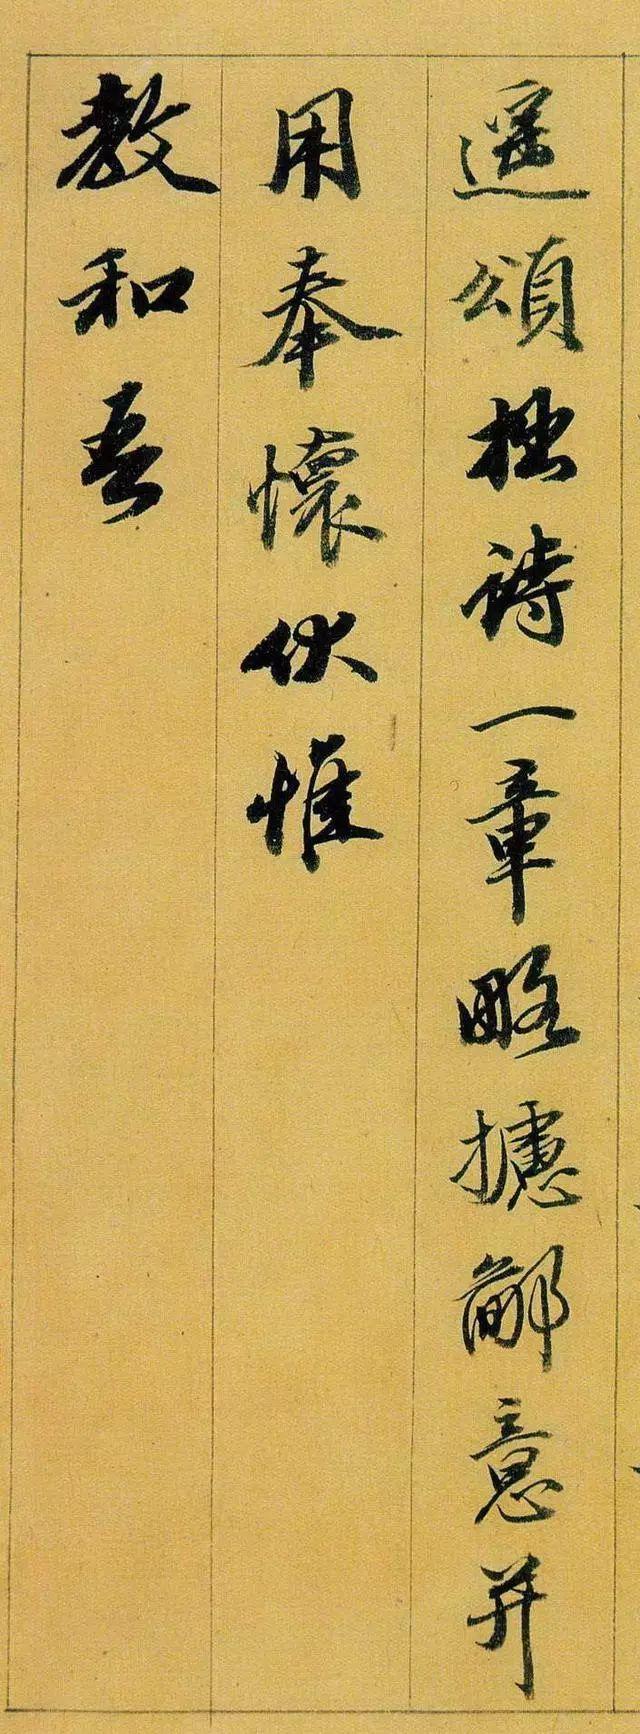 遥頌拙詩一章略攄鄙意并
用奉懷伏惟
教和吾